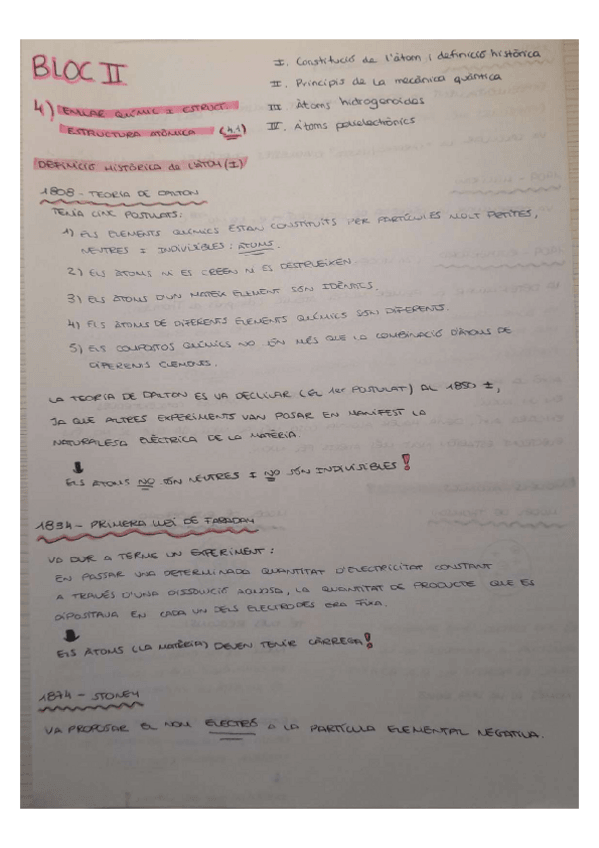 BLOC II
I. Constitució de l'àtom i definició històrica
II. Principis de la mecànica quàntica
III. Àtoms hidrogenoides
IV. Àtoms polielectrònics
4) ENLLAÇ QUÍMIC I ESTRUCT.
ESTRUCTURA ATÒMICA (4.1)
DEFINICIÓ HISTÒRICA de L'ÀTOM (I)
1808 - TEORIA DE DALTON
TENIA CINC POSTULATS:
1) ELS ELEMENTS QUÍMICS ESTAN CONSTITUÏTS PER PARTÍCULES MOLT PETITES,
NEUTRES I INDIVISIBLES: ÀTOMS.
2) ELS ÀTOMS NI ES CREEN NI ES DESTRUEIXEN.
3) ELS ÀTOMS D'UN MATEIX ELEMENT SÓN IDÈNTICS.
4) ELS ÀTOMS DE DIFERENTS ELEMENTS QUÍMICS SÓN DIFERENTS.
5) ELS COMPOSTOS QUÍMICS NO SÓN MÉS QUE LA COMBINACIÓ D'ÀTOMS DE
DIFERENTS ELEMENTS.
LA TEORIA DE DALTON ES VA DECLINAR (EL 1er POSTULAT) AL 1850 ±,
JA QUE ALTRES EXPERIMENTS VAN POSAR EN MANIFEST LA
NATURALESA ELÈCTRICA DE LA MATÈRIA.
ELS ÀTOMS NO SÓN NEUTRES I NO SÓN INDIVISIBLES!
1834 - PRIMERA LLEI DE FARADAY
VA DUR A TERME UN EXPERIMENT:
EN PASSAR UNA DETERMINADA QUANTITAT D'ELECTRICITAT CONSTANT
A TRAVÉS D'UNA DISSOLUCIÓ AQUOSA, LA QUANTITAT DE PRODUCTE QUE ES
DIPOSITAVA EN CADA UN DELS ELECTRODES ERA FIXA.
ELS ÀTOMS (LA MATÈRIA) DEVEN TENIR CÀRREGA!
1874 - STONEY
VA PROPOSAR EL NOM ELECTRÓ A LA PARTÍCULA ELEMENTAL NEGATIVA.